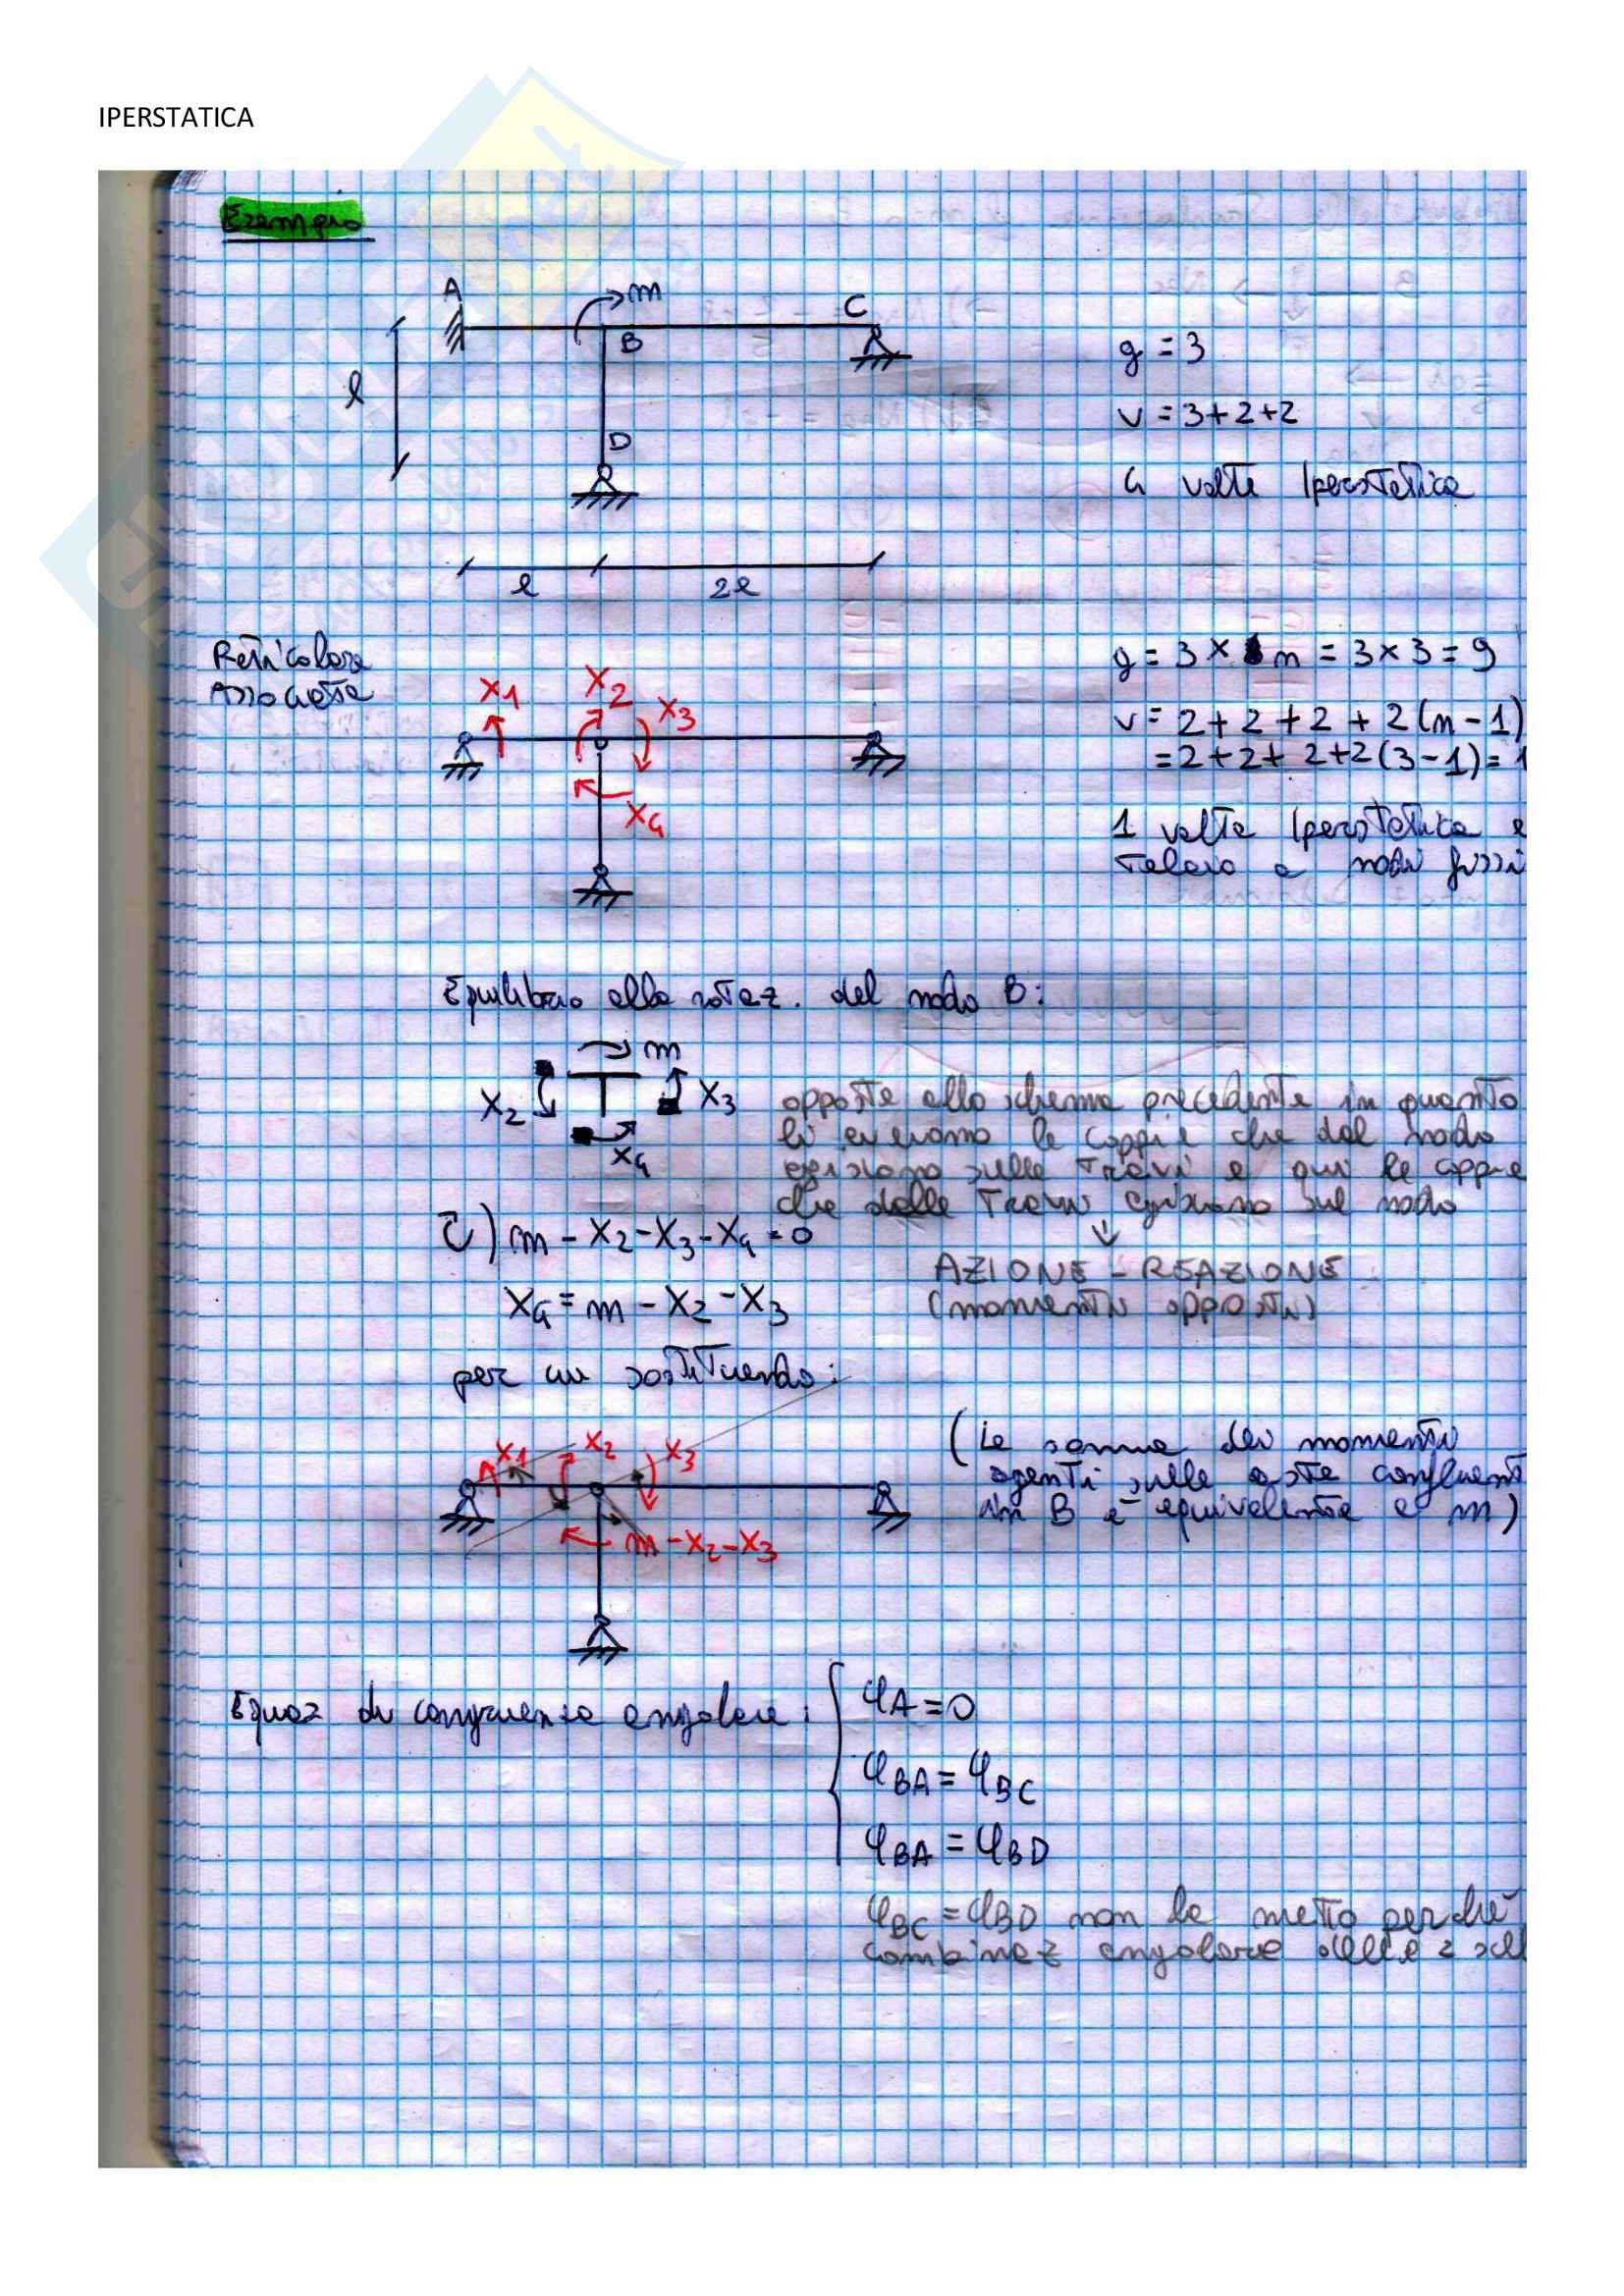 IPERSTATICA
Esempio
A
m
C
B
l
D
l
2l
g = 3
v = 3+2+2
4 volte Iperstatica
Reticolare
Associata
X1
X2
X3
X4
g = 3 × n = 3×3 = 9
v = 2 + 2 + 2 + 2(n-1)
= 2+2+ 2+2(3-1) = 1
1 volta Iperstatica e
Telaio a nodi fissi
Equilibrio alla rotaz. del nodo B:
m
X2
X3
X4
opposte allo schema precedente in quanto
lì avevamo le coppie che dal nodo
agiscono sulle Travi e qui le coppie
che dalle Travi agiscono sul nodo
↓
AZIONE - REAZIONE
(momenti opposti)
↻) m - X2 - X3 - X4 = 0
X4 = m - X2 - X3
per cui sostituendo:
X1
X2
X3
m - X2 - X3
(La somma dei momenti
agenti sulle aste confluent
in B è equivalente a m)
Equaz di congruenza angolare:
φA = 0
φBA = φBC
φBA = φBD
φBC = φBD non la metto perchè
combinaz angolare delle 2